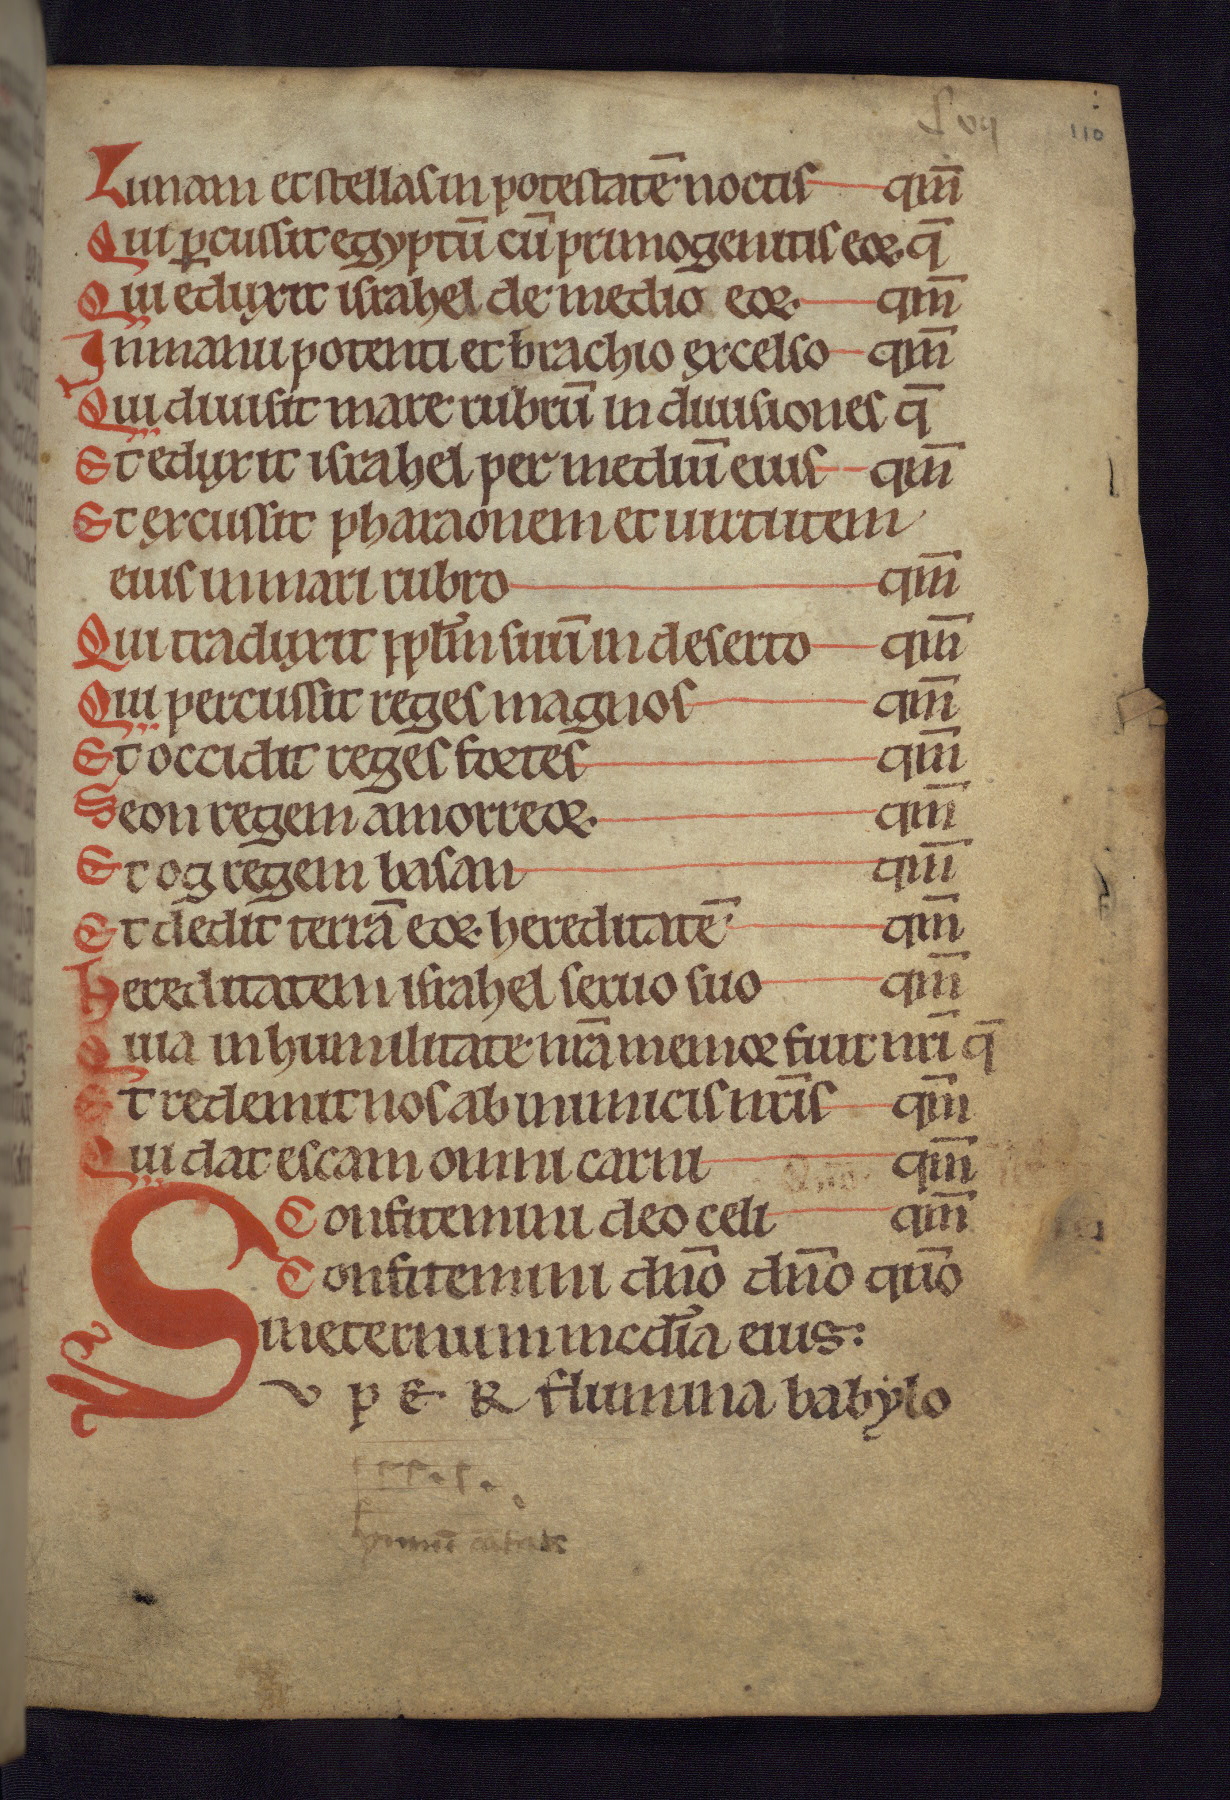 110
Lunam et stellas in potestatē noctis qm̄
Qui ꝑcussit egyptū cū primogenitis eoꝝ q̄
Qui eduxit israhel de medio eoꝝ qm̄
In manu potenti et brachio excelso qm̄
Qui diuisit mare rubrū in diuisiones q̄
Et eduxit israhel per mediū eius qm̄
Et excussit pharaonem et uirtutem
eius in mari rubro qm̄
Qui traduxit pplm̄ suū in deserto qm̄
Qui percussit reges magnos qm̄
Et occidit reges fortes qm̄
Seon regem amorreoꝝ qm̄
Et og regem basan qm̄
Et dedit terrā eoꝝ hereditatē qm̄
Hereditatem israhel seruo suo qm̄
Quia in humilitate nrā memor fuit nrī q̄
Et redemit nos ab inimicis nrīs qm̄
Qui dat escam omni carni qm̄
Confitemini deo celi qm̄
Confitemini dn̄o dn̄o qūo
in eternum mcdīa eius:
SVPER flumina babylo